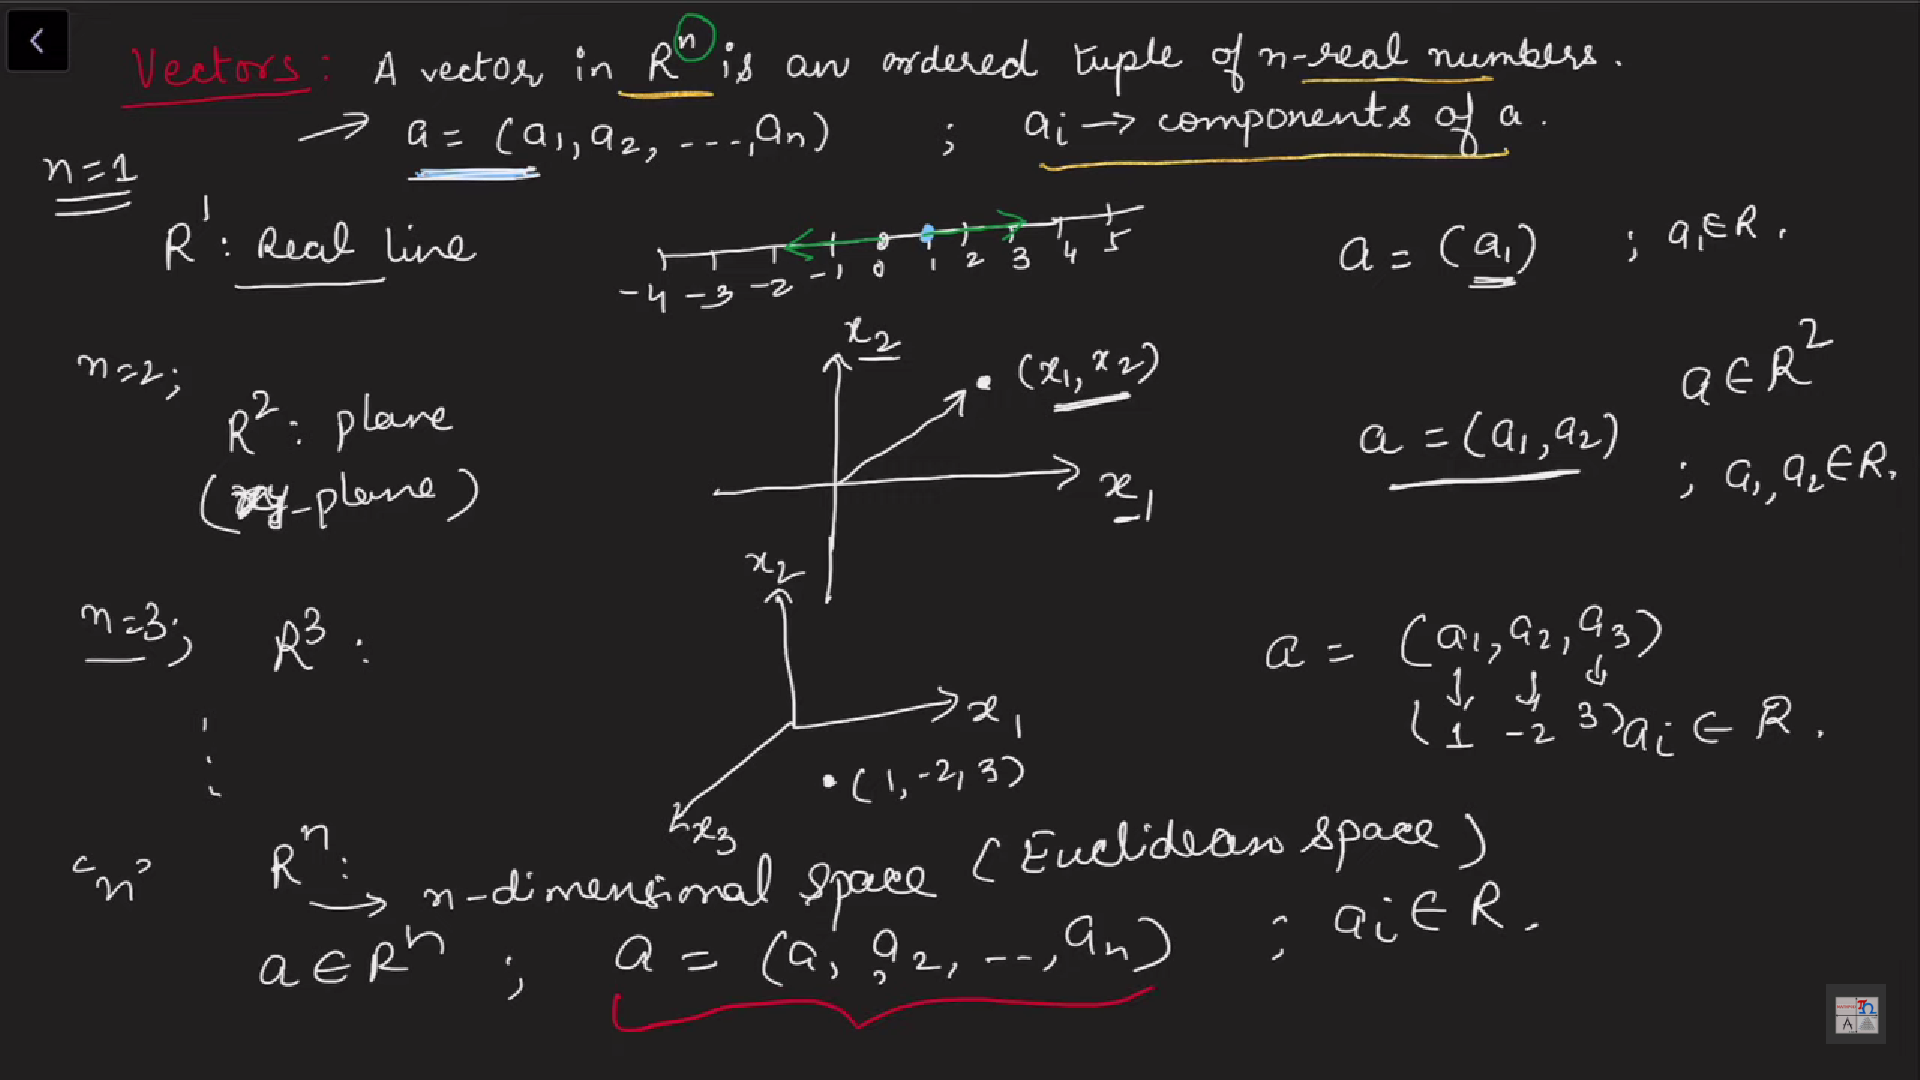 Vectors: A vector in Rⁿ is an ordered tuple of n-real numbers.
→ a = (a₁, a₂, ---, aₙ) ; aᵢ → components of a.
n=1
R¹: Real line
-4 -3 -2 -1 0 1 2 3 4 5
a = (a₁) ; a₁∈R.
n=2;
R²: plane
(xy-plane)
x₂
(x₁, x₂)
x₁
a∈R²
a = (a₁, a₂)
; a₁, a₂∈R.
n=3; R³:
x₂
x₁
x₃
•(1, -2, 3)
a = (a₁, a₂, a₃)
↓ ↓ ↓
(1 -2 3) aᵢ ∈ R.
'n' Rⁿ: → n-dimensional space (Euclidean space)
a∈Rⁿ ; a = (a₁, a₂, ---, aₙ) ; aᵢ∈R.